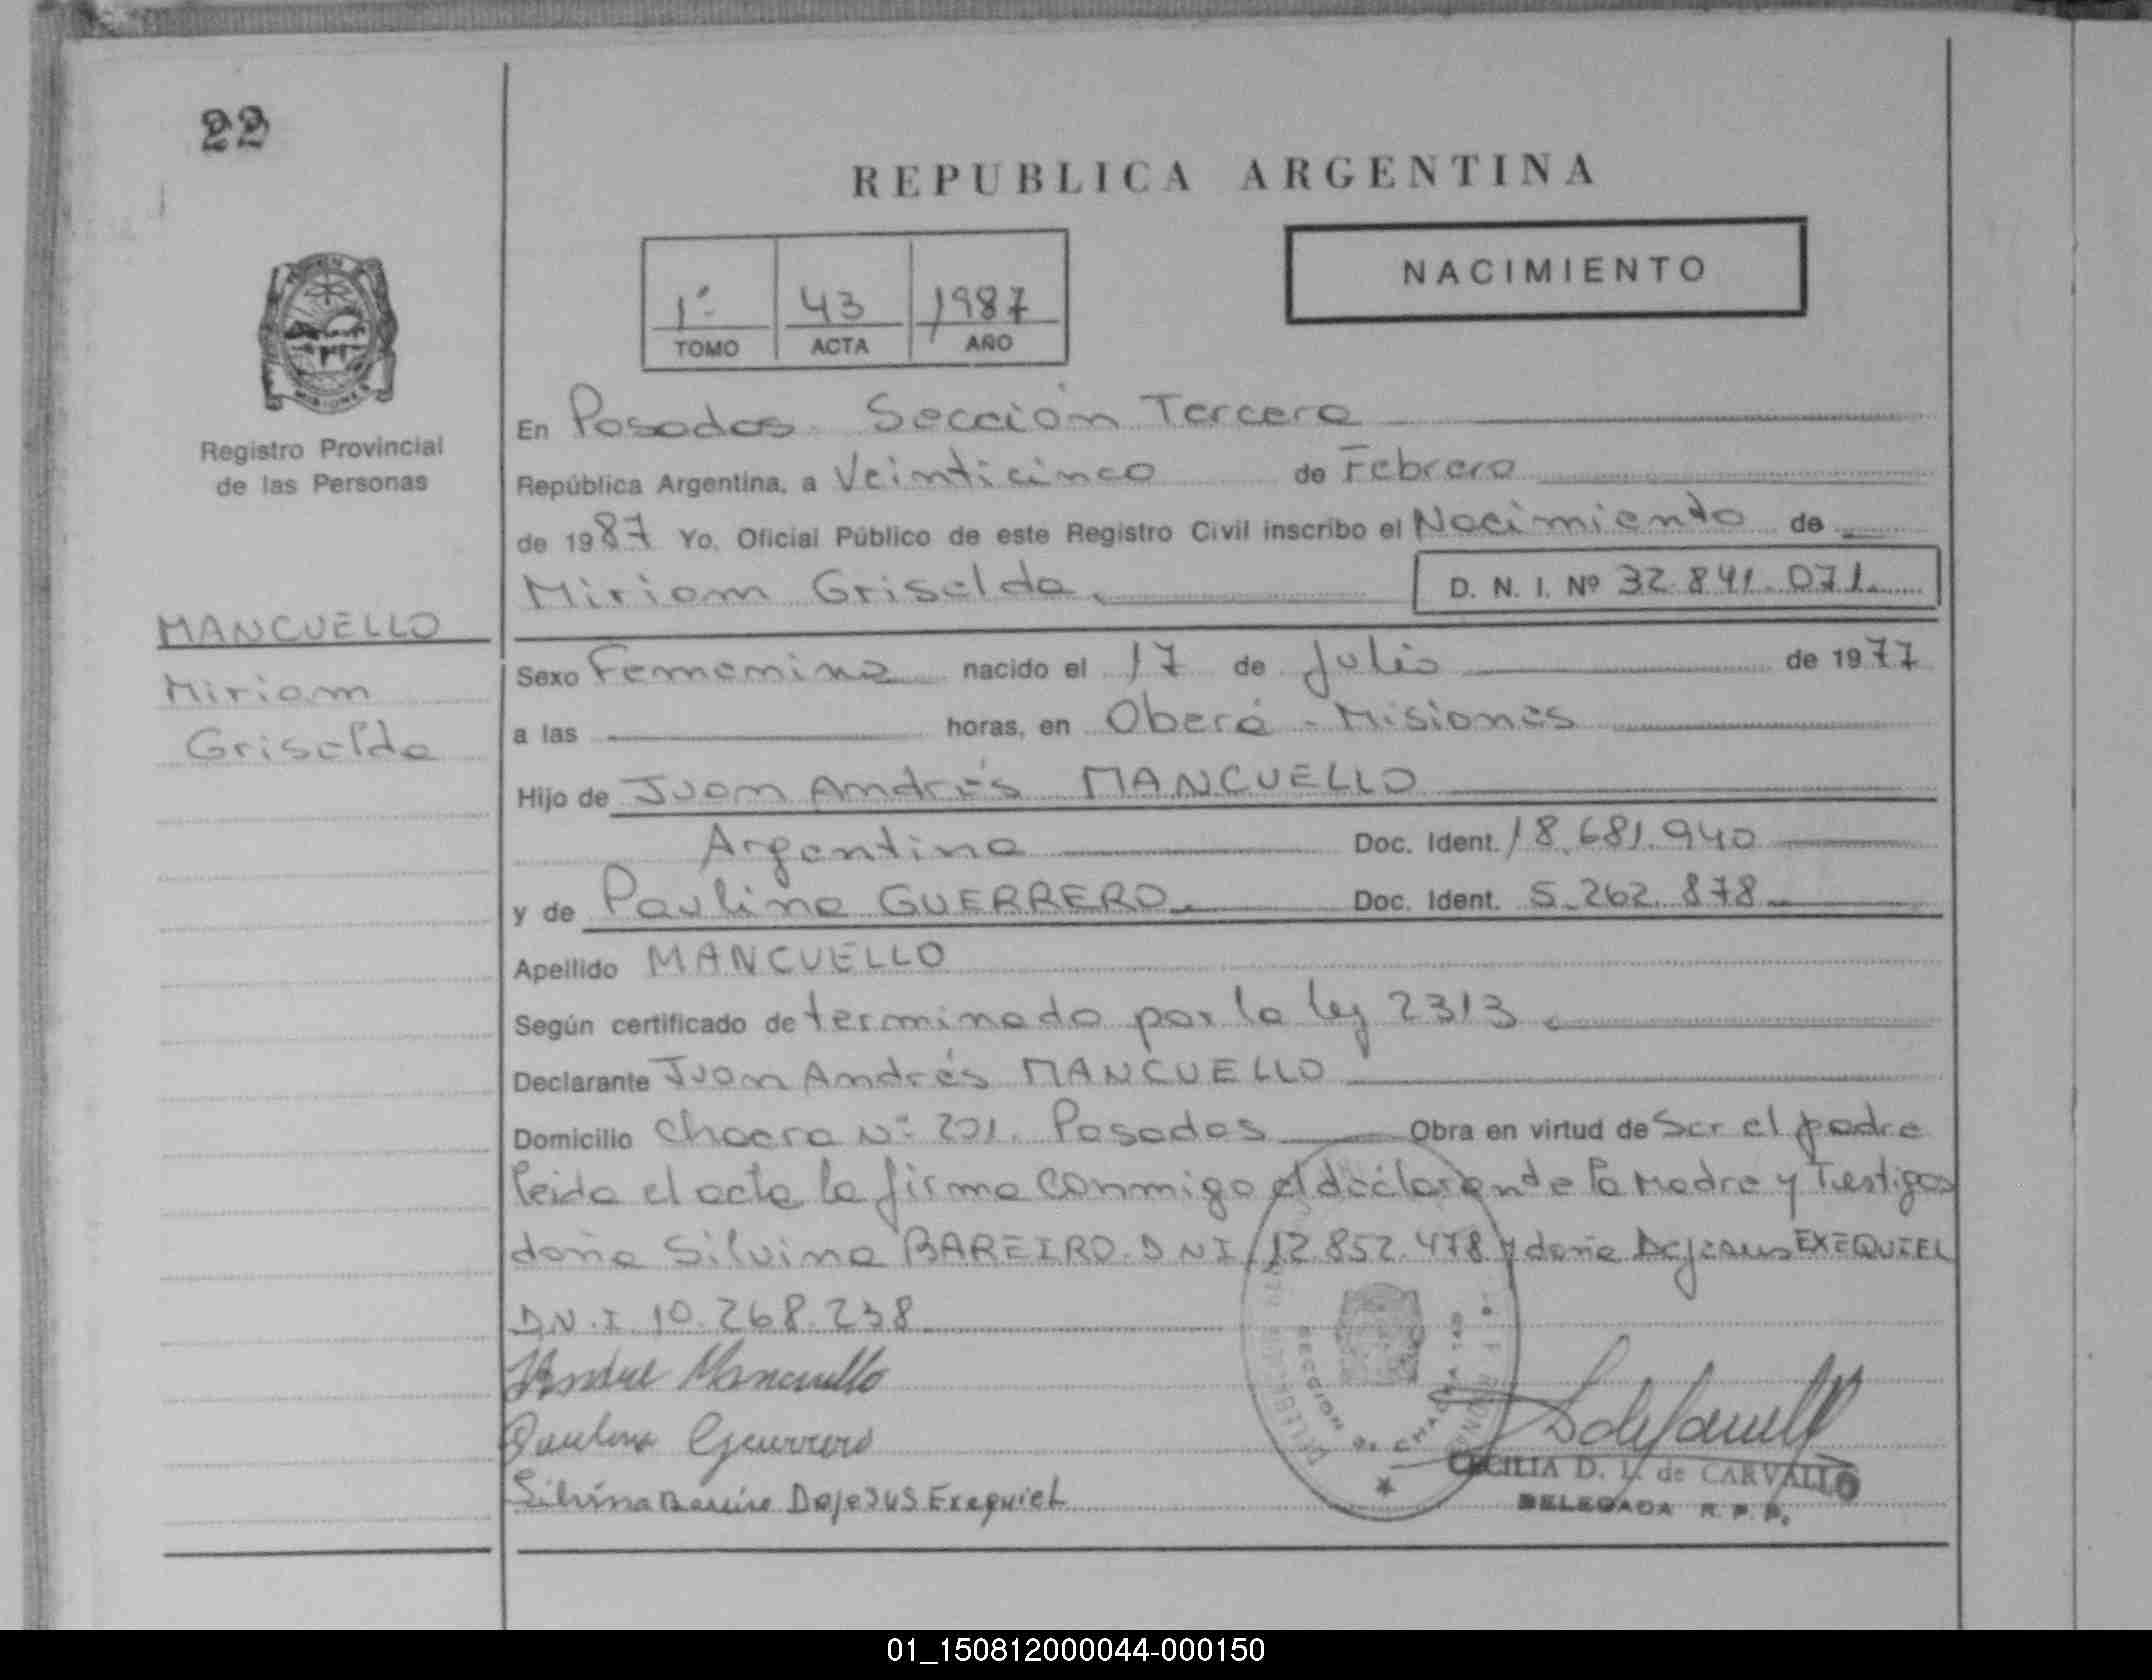 22
REPUBLICA ARGENTINA
NACIMIENTO
1º 43 1987
TOMO ACTA AÑO
Registro Provincial
de las Personas
MANCUELLO
Miriam
Griselda
En Posadas Sección Tercera
República Argentina, a Veinticinco de Febrero
de 1987 Yo, Oficial Público de este Registro Civil inscribo el Nacimiento de
Miriam Griselda. D. N. I. Nº 32.841.071
Sexo Femenino nacido el 17 de Julio de 1977
a las horas, en Oberá - Misiones
Hijo de Juan Andrés MANCUELLO
Argentina Doc. Ident. 18.681.940
y de Paulina GUERRERO Doc. Ident. 5.262.878
Apellido MANCUELLO
Según certificado determinado por la ley 2313
Declarante Juan Andrés MANCUELLO
Domicilio Chacra Nº 201. Posadas Obra en virtud de Ser el padre
leida el acta la firma conmigo el declarante la Madre y Testigos
doña Silvina BAREIRO. D N I. 12.852.478 y doña Dejesus EXEQUIEL
D.N.I 10.268.238
Andres Mancuello
Paulina Guerrero
Silvina Bareiro Dejesus Exequiel
SECCION DE CHACRA
CECILIA D. L. de CARVALLO
DELEGADA R. P. P.
01_150812000044-000150